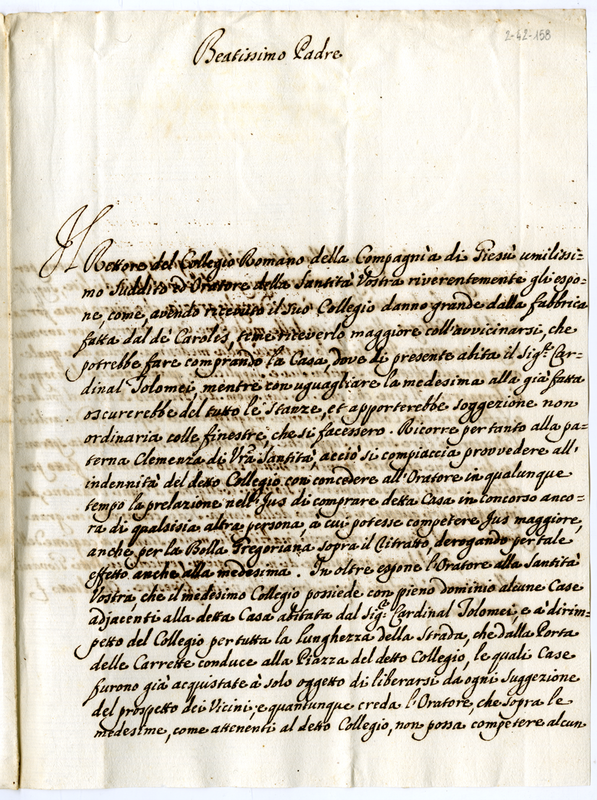 2-42-158
Beatissimo Padre
Il Rettore del Collegio Romano della Compagnia di Giesù umilissi=
mo suddito ed Oratore della Santità Vostra riverentemente gli espo=
ne, come, avendo ricevuto il suo Collegio danno grande dalla fabbrica
fatta dal de Carolis, teme riceverlo maggiore coll'avvicinarsi, che
potrebbe fare comprando la Casa, dove di presente abita il Sig.r Car=
dinal Tolomei, mentre con uguagliare la medesima alla già fatta
oscurerebbe del tutto le Stanze, et apporterebbe soggezione non
ordinaria colle finestre, che si facessero. Ricorre per tanto alla pa=
terna Clemenza di Vra Santità, acciò si compiaccia provvedere all'
indennità del detto Collegio con concedere all'Oratore in qualunque
tempo la prelazione nell'Jus di comprare detta Casa in concorso anco=
ra di qualsisia altra persona, à cui potesse competere Jus maggiore,
anche per la Bolla Gregoriana sopra il Ritratto, derogando per tale
effetto anche alla medesima. In oltre espone l'Oratore alla Santità
Vostra, che il medesimo Collegio possiede con pieno dominio alcune Case
adjacenti alla detta Casa abitata dal Sig.r Cardinal Tolomei, e a dirim=
petto del Collegio per tutta la lunghezza della Strada, che dalla Porta
delle Carrette conduce alla Piazza del detto Collegio, le quali Case
furono già acquistate à solo oggetto di liberarsi da ogni suggezione
del prospetto dei Vicini; e quantunque creda l'Oratore, che sopra le
medesime, come attenenti al detto Collegio, non possa competere alcun